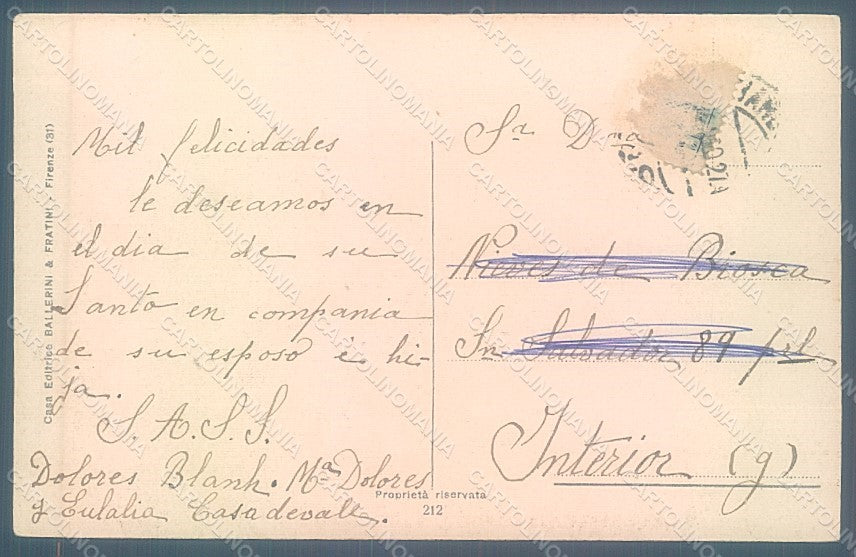 Mil felicidades
le deseamos en
el dia de su
Santo en compania
de su esposo è hi-
ja.
S. A. S. S.
Dolores Blanh. Mª Dolores
y Eulalia Casadevall.
Sr Dna
Nieves de Biosca
Sn Salvador 89 prl
Interior (g)
Casa Editrice BALLERINI & FRATINI - Firenze (31)
Proprietà riservata
212
CARTOLINOMANIA